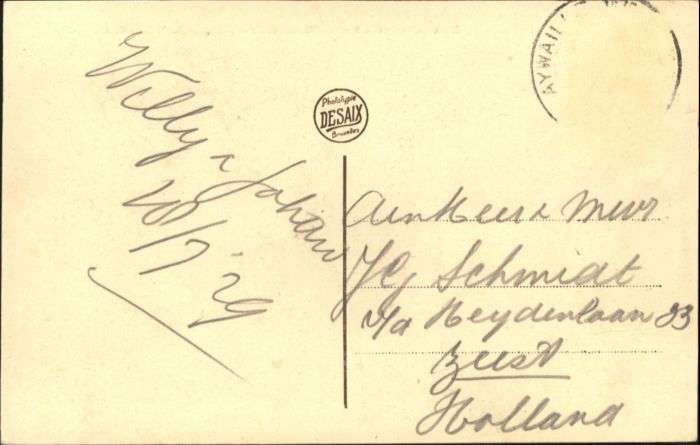 AYWAIL
Phototypie
DESAIX
Bruxelles
Willy & Johan
20/7 '29
Aan Heer & Mevr
J G Schmidt
v/d Heydenlaan 23
Zeist
Holland